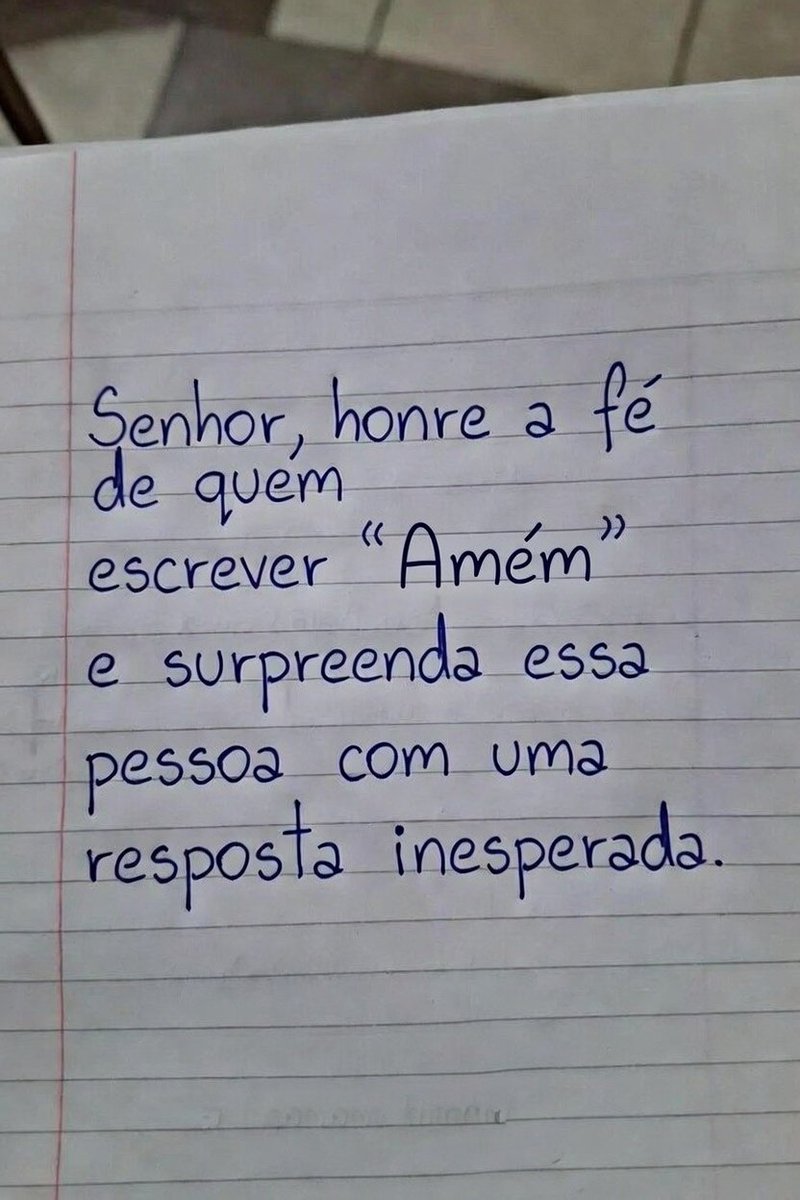 Senhor, honre a fé
de quem
escrever “Amém”
e surpreenda essa
pessoa com uma
resposta inesperada.